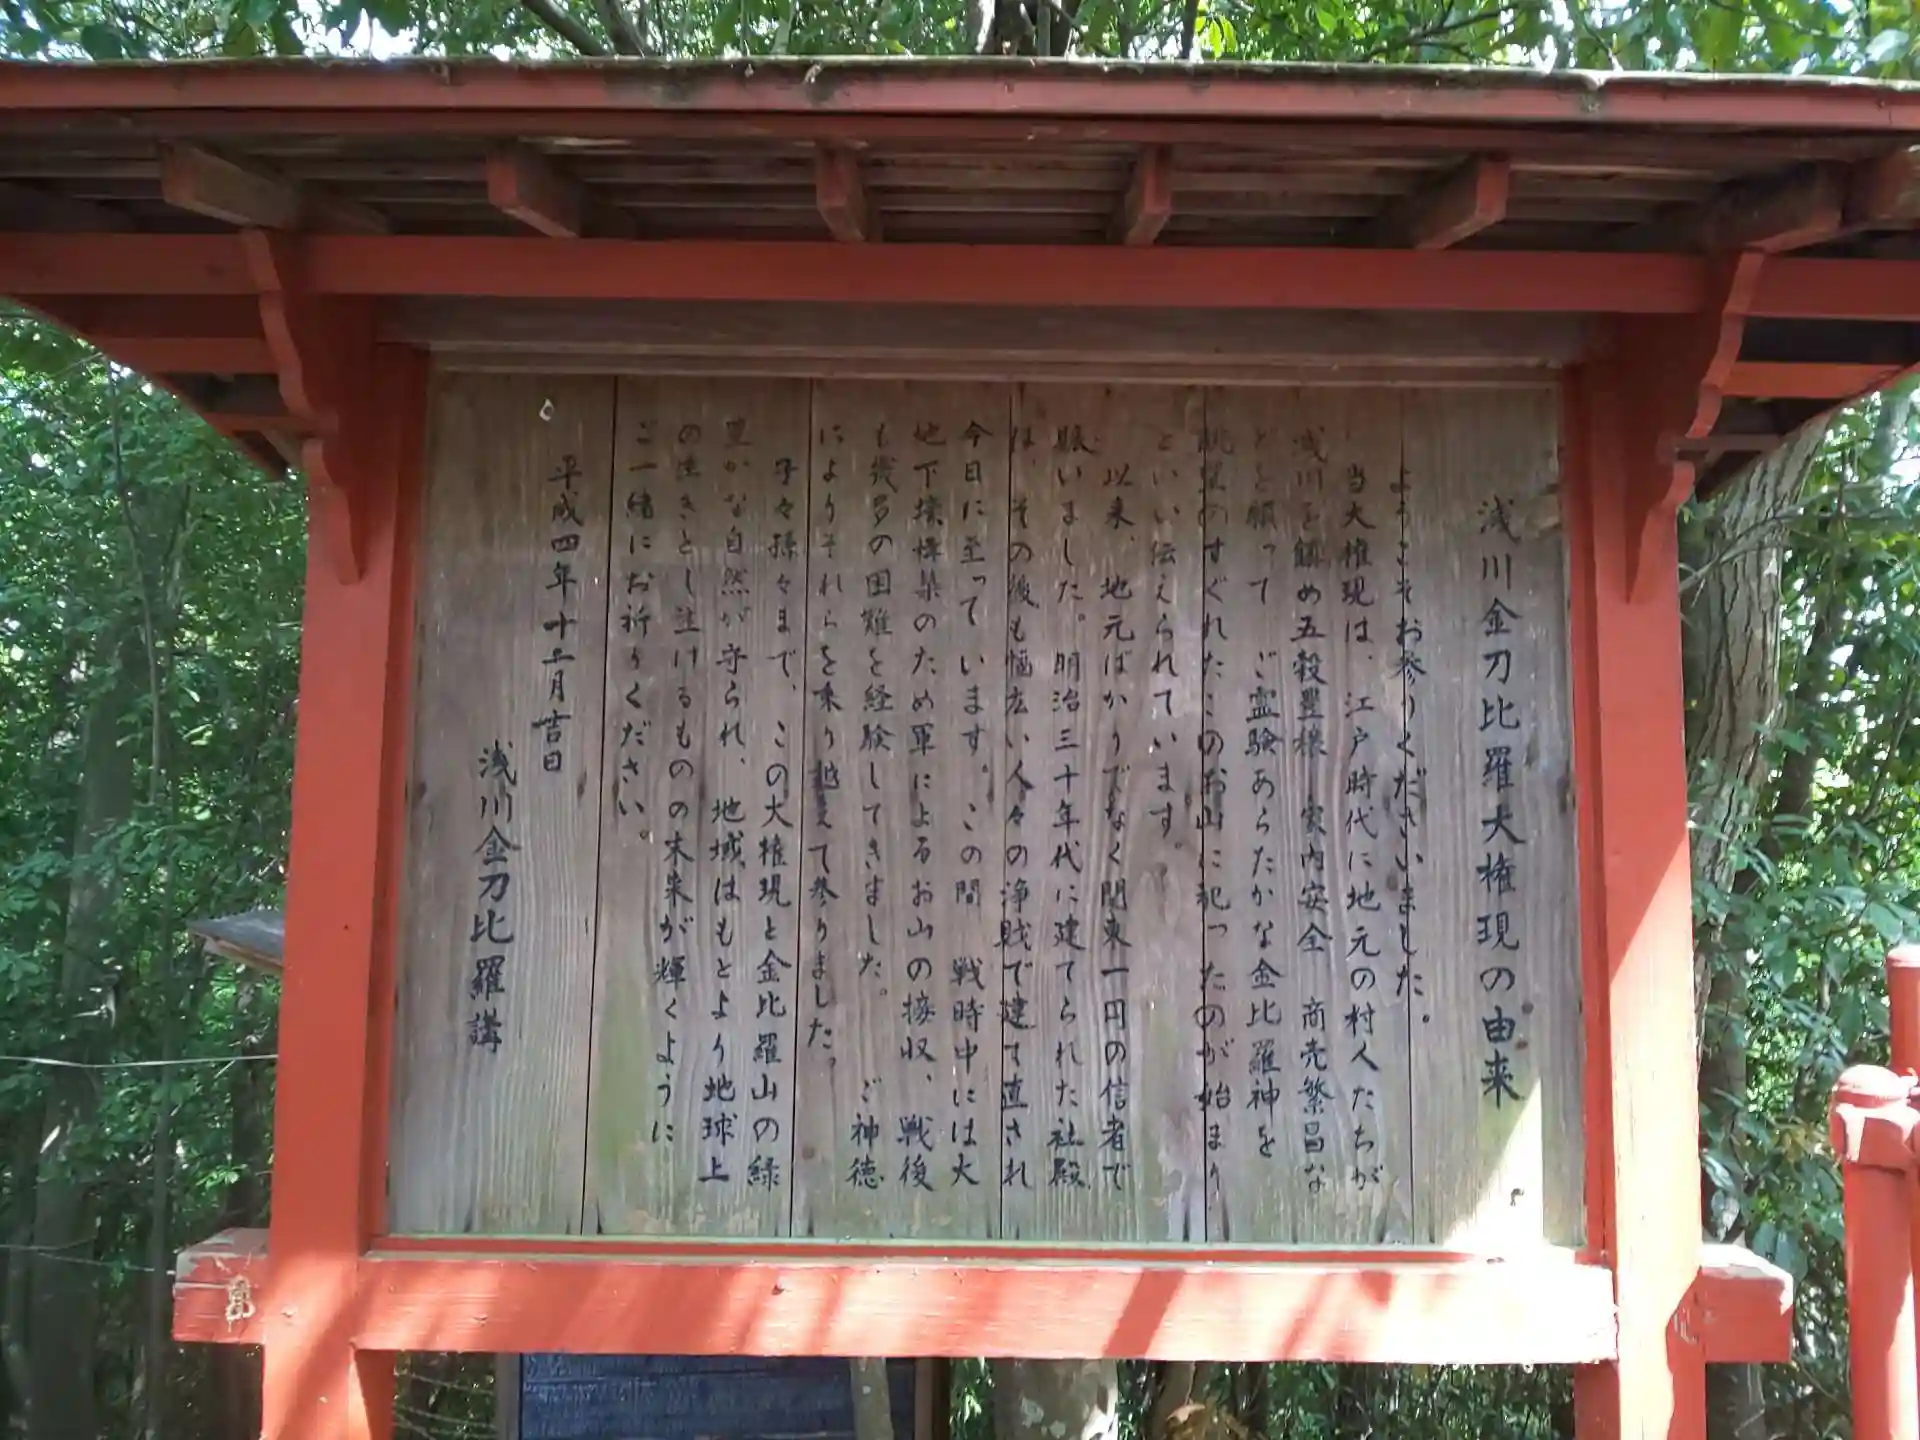 浅川金刀比羅大権現の由来
ようこそお参りくださいました。
当大権現は、江戸時代に地元の村人たちが
浅川を鎮め五穀豊穣 家内安全 商売繁昌な
どと願って ご霊験あらたかな金比羅神を
眺望のすぐれたこのお山に祀ったのが始まり
といい伝えられています。
以来、地元ばかりでなく関東一円の信者で
賑いました。明治三十年代に建てられた社殿
は、その後も幅広い人々の浄財で建て直され
今日に至っています。この間 戦時中には大
地下壕構築のため軍によるお山の接収、戦後
も幾多の困難を経験してきました。 ご神徳
によりそれらを乗り越えて参りました。
子々孫々まで、この大権現と金比羅山の緑
豊かな自然が守られ、地域はもとより地球上
の生きとし生けるものの未来が輝くように
ご一緒にお祈りください。
平成四年十二月吉日
浅川金刀比羅講